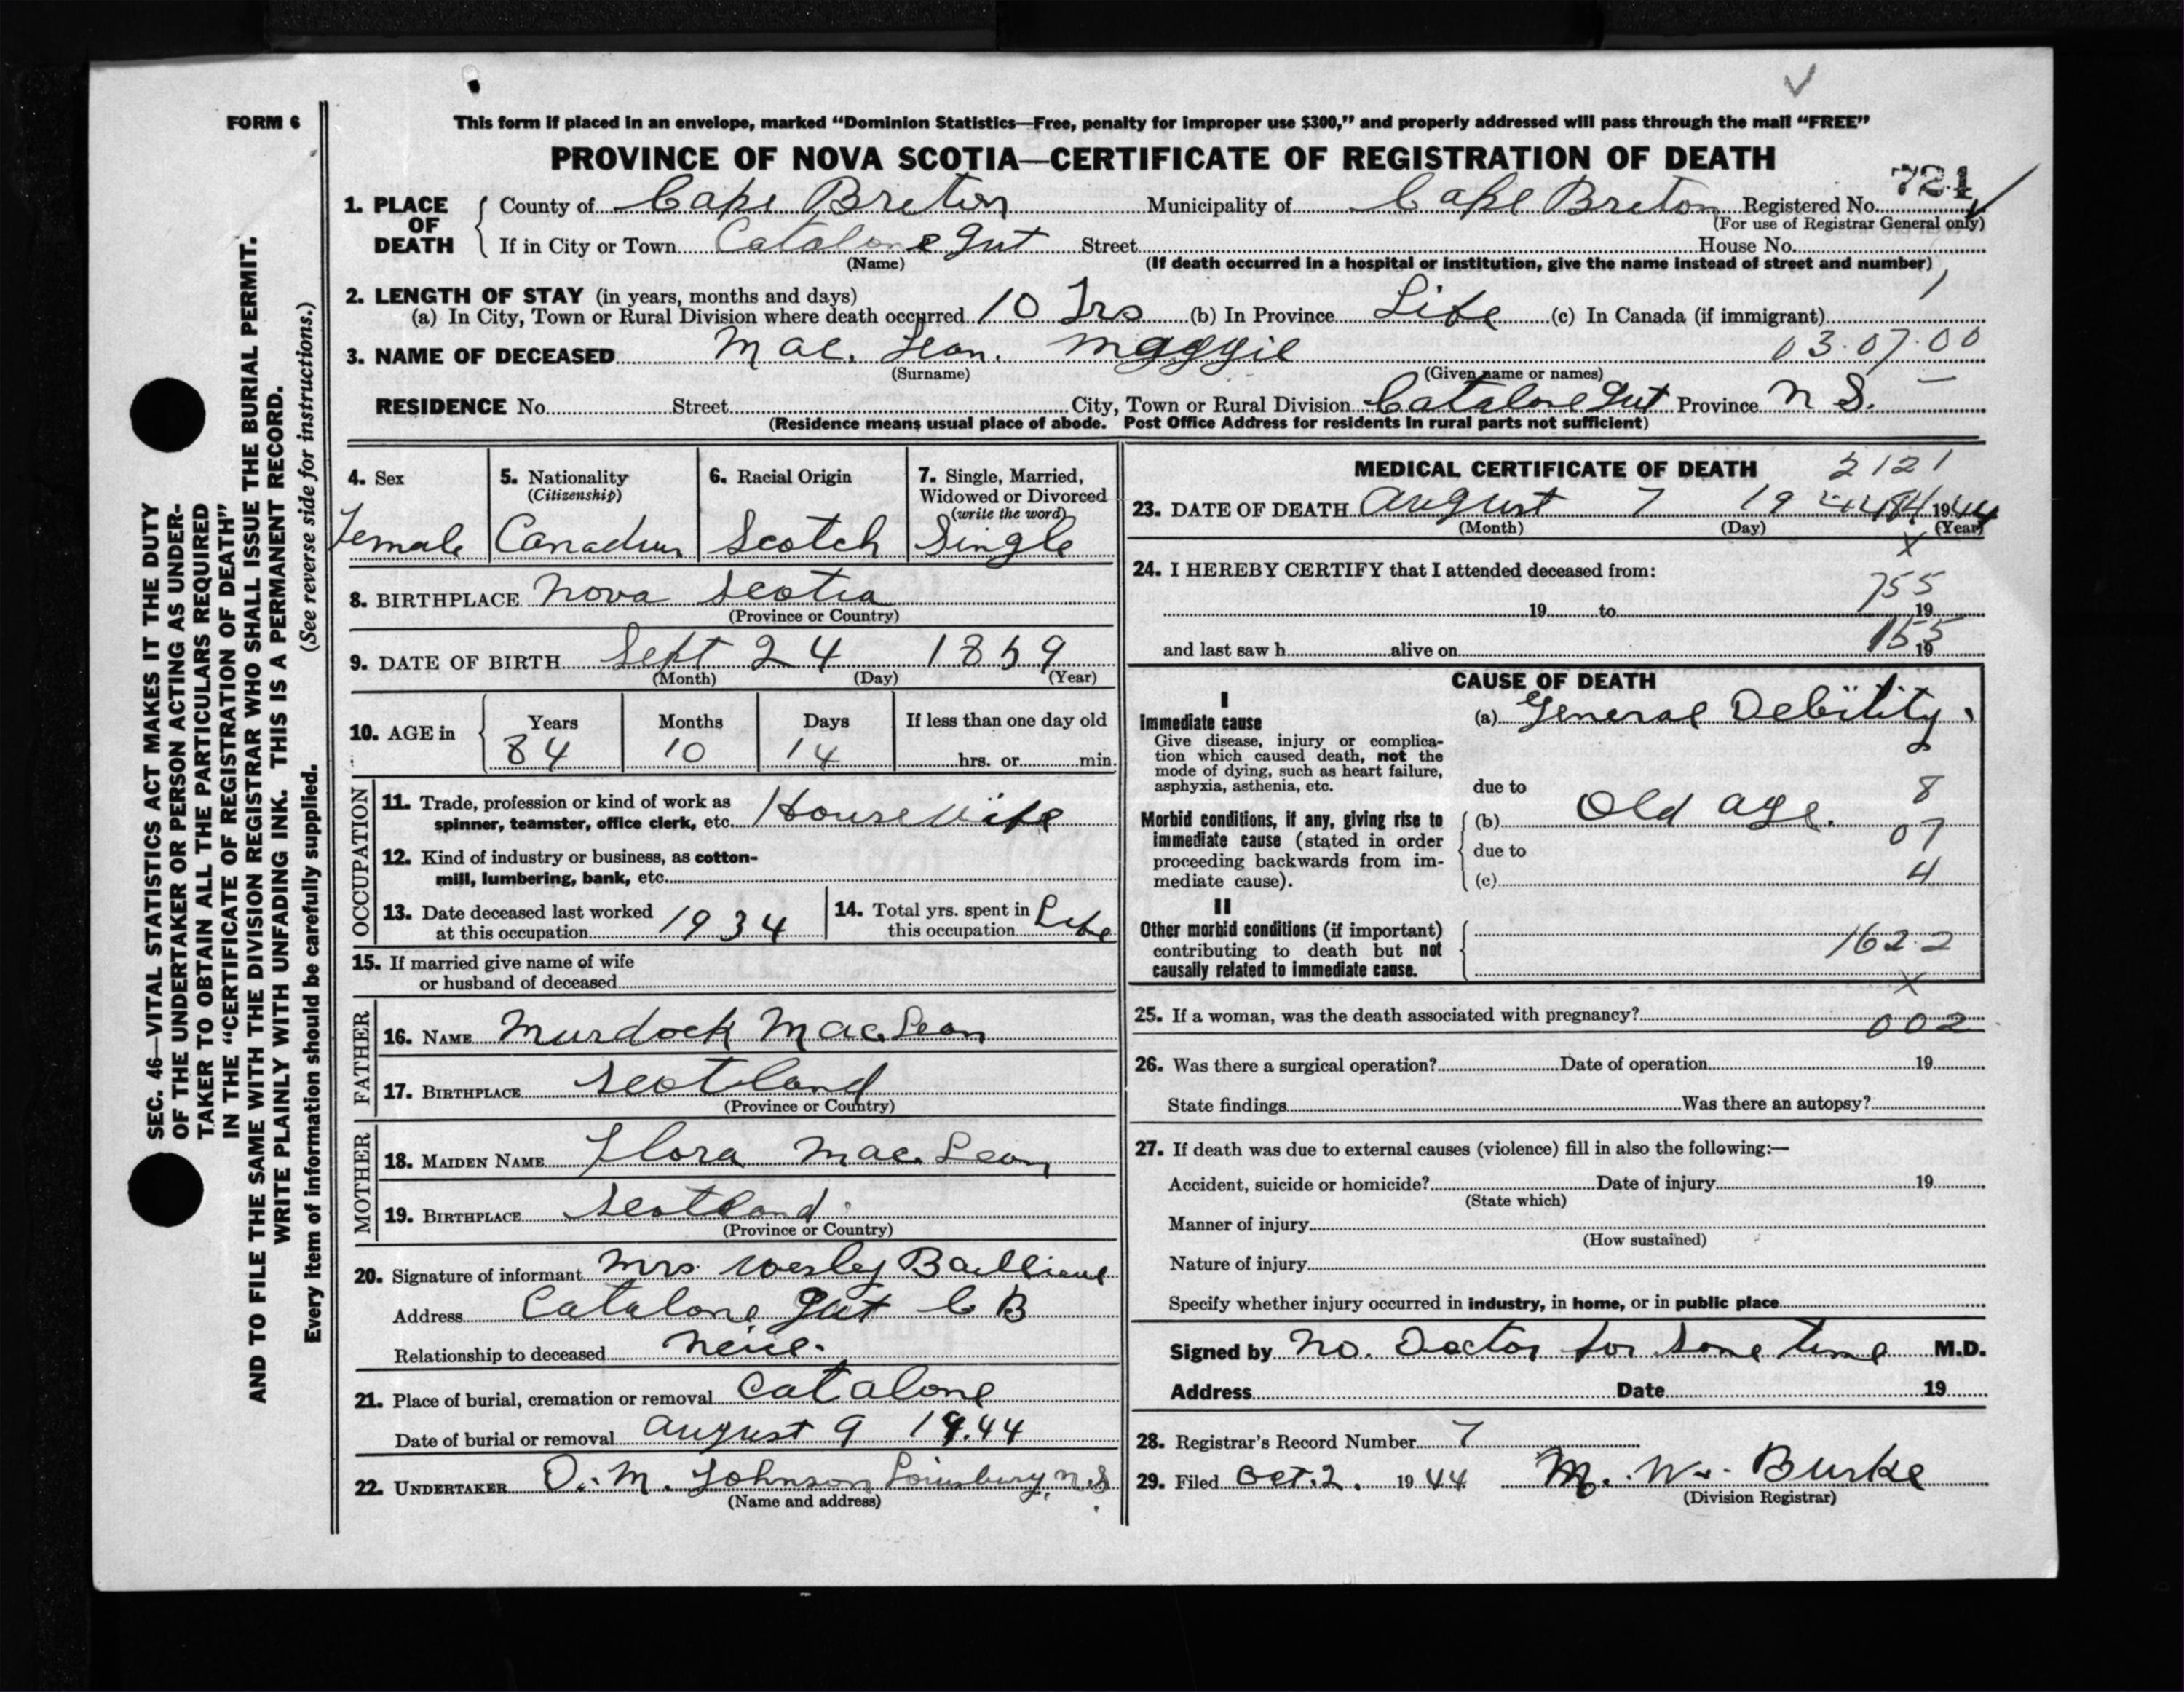 FORM 6
This form if placed in an envelope, marked “Dominion Statistics—Free, penalty for improper use $300,” and properly addressed will pass through the mail “FREE”
PROVINCE OF NOVA SCOTIA—CERTIFICATE OF REGISTRATION OF DEATH
724
1. PLACE OF DEATH
County of Cape Breton Municipality of Cape Breton Registered No.
(For use of Registrar General only)
If in City or Town Catalone Gut Street House No.
(Name) (If death occurred in a hospital or institution, give the name instead of street and number)
2. LENGTH OF STAY (in years, months and days)
(a) In City, Town or Rural Division where death occurred 10 Yrs (b) In Province Life (c) In Canada (if immigrant)
3. NAME OF DECEASED Mac. Lean. Maggie 03.07.00
(Surname) (Given name or names)
RESIDENCE No. Street City, Town or Rural Division Catalone Gut Province N S.
(Residence means usual place of abode. Post Office Address for residents in rural parts not sufficient)
4. Sex
Female
5. Nationality
(Citizenship)
Canadian
6. Racial Origin
Scotch
7. Single, Married,
Widowed or Divorced
(write the word)
Single
8. BIRTHPLACE Nova Scotia
(Province or Country)
9. DATE OF BIRTH Sept 24 1859
(Month) (Day) (Year)
10. AGE in
Years Months Days If less than one day old
84 10 14 hrs. or min.
OCCUPATION
11. Trade, profession or kind of work as
spinner, teamster, office clerk, etc. House Wife
12. Kind of industry or business, as cotton-
mill, lumbering, bank, etc.
13. Date deceased last worked
at this occupation 1934
14. Total yrs. spent in
this occupation Life
15. If married give name of wife
or husband of deceased
FATHER
16. NAME Murdock MacLean
17. BIRTHPLACE Scotland
(Province or Country)
MOTHER
18. MAIDEN NAME Flora Mac. Lean
19. BIRTHPLACE Scotland
(Province or Country)
20. Signature of informant Mrs Wesley
Address Catalone Gut C B
Relationship to deceased Neice.
21. Place of burial, cremation or removal Catalone
Date of burial or removal August 9 1944
22. UNDERTAKER D. M. Johnson Louisburg, N.S.
(Name and address)
MEDICAL CERTIFICATE OF DEATH 2121
23. DATE OF DEATH August 7 19 1944
(Month) (Day) (Year)
X
24. I HEREBY CERTIFY that I attended deceased from:
755
19 to 19
155
and last saw h alive on 19
CAUSE OF DEATH
I
Immediate cause
Give disease, injury or complica-
tion which caused death, not the
mode of dying, such as heart failure,
asphyxia, asthenia, etc.
(a) General Debility.
2
due to
8
Morbid conditions, if any, giving rise to
immediate cause (stated in order
proceeding backwards from im-
mediate cause).
(b) Old age.
07
due to
(c) 4
II
Other morbid conditions (if important)
contributing to death but not
causally related to immediate cause.
162.2
X
25. If a woman, was the death associated with pregnancy?
002
26. Was there a surgical operation? Date of operation 19
State findings Was there an autopsy?
27. If death was due to external causes (violence) fill in also the following:—
Accident, suicide or homicide? Date of injury 19
(State which)
Manner of injury
(How sustained)
Nature of injury
Specify whether injury occurred in industry, in home, or in public place
Signed by No. Doctor for some time M.D.
Address Date 19
28. Registrar's Record Number 7
29. Filed Oct. 2. 1944 M. W. Burke
(Division Registrar)
SEC. 46—VITAL STATISTICS ACT MAKES IT THE DUTY
OF THE UNDERTAKER OR PERSON ACTING AS UNDER-
TAKER TO OBTAIN ALL THE PARTICULARS REQUIRED
IN THE “CERTIFICATE OF REGISTRATION OF DEATH”
AND TO FILE THE SAME WITH THE DIVISION REGISTRAR WHO SHALL ISSUE THE BURIAL PERMIT.
WRITE PLAINLY WITH UNFADING INK. THIS IS A PERMANENT RECORD.
Every item of information should be carefully supplied. (See reverse side for instructions.)